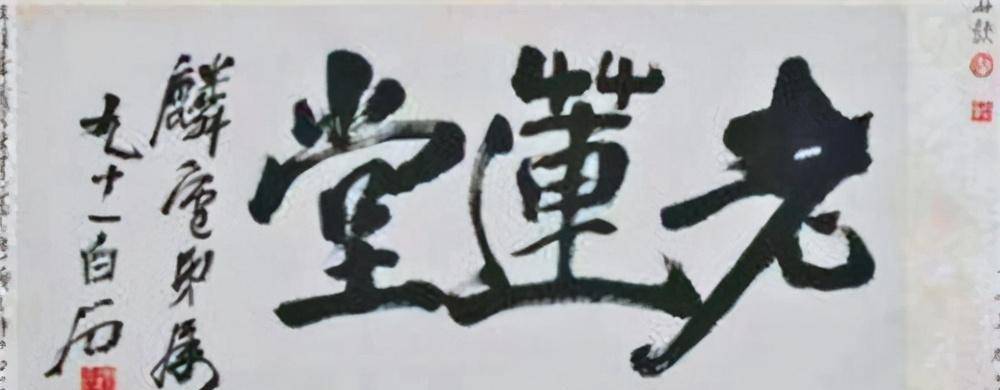 老蓮堂
麟廬弟屬
九十一白石